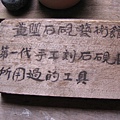 董坐石硯藝術館
第一代手工刻石硯
所用過的工具